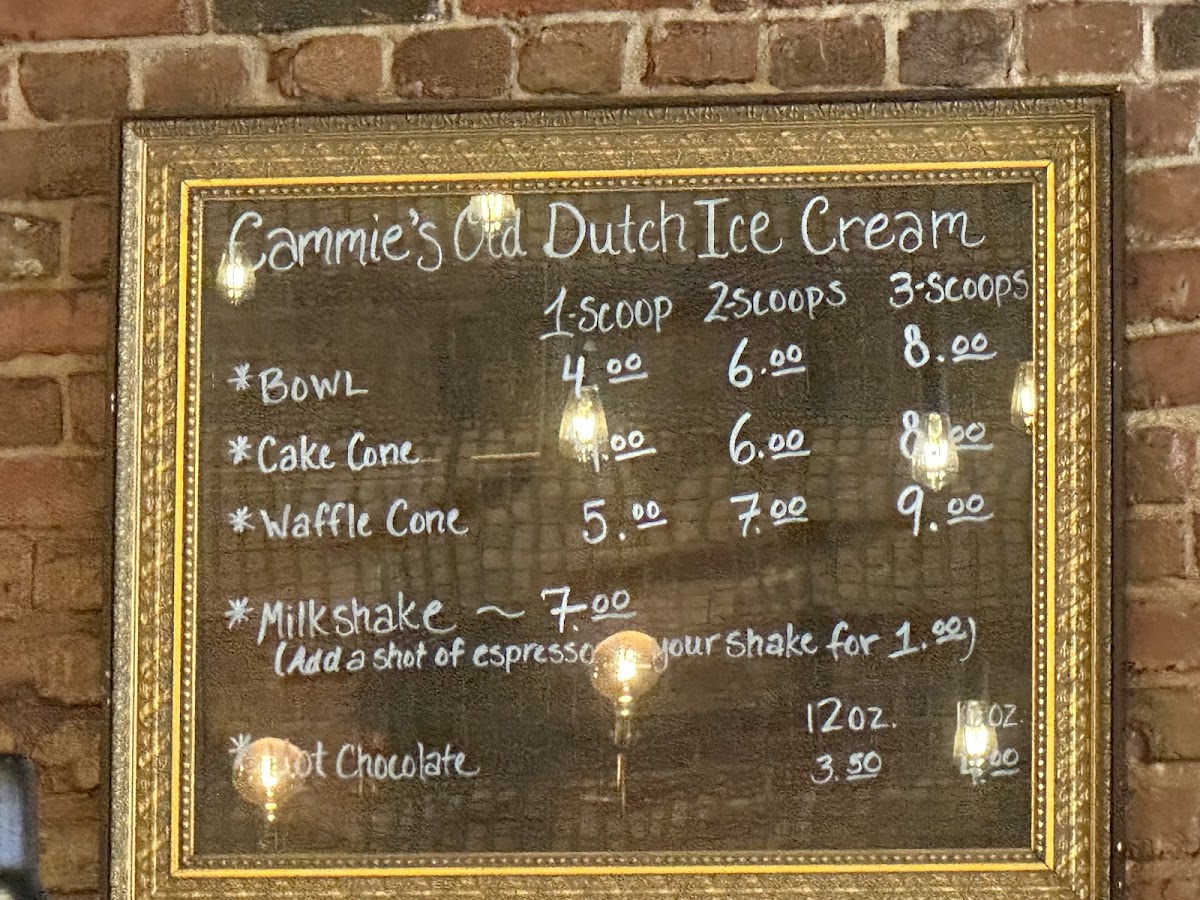 Cammie's Old Dutch Ice Cream
1-Scoop 2-Scoops 3-Scoops
*Bowl 4.00 6.00 8.00
*Cake Cone 6.00 8.00
*Waffle Cone 5.00 7.00 9.00
*Milkshake ~ 7.00
(Add a shot of espresso your shake for 1.00)
12oz.
*Hot Chocolate 3.50 4.00